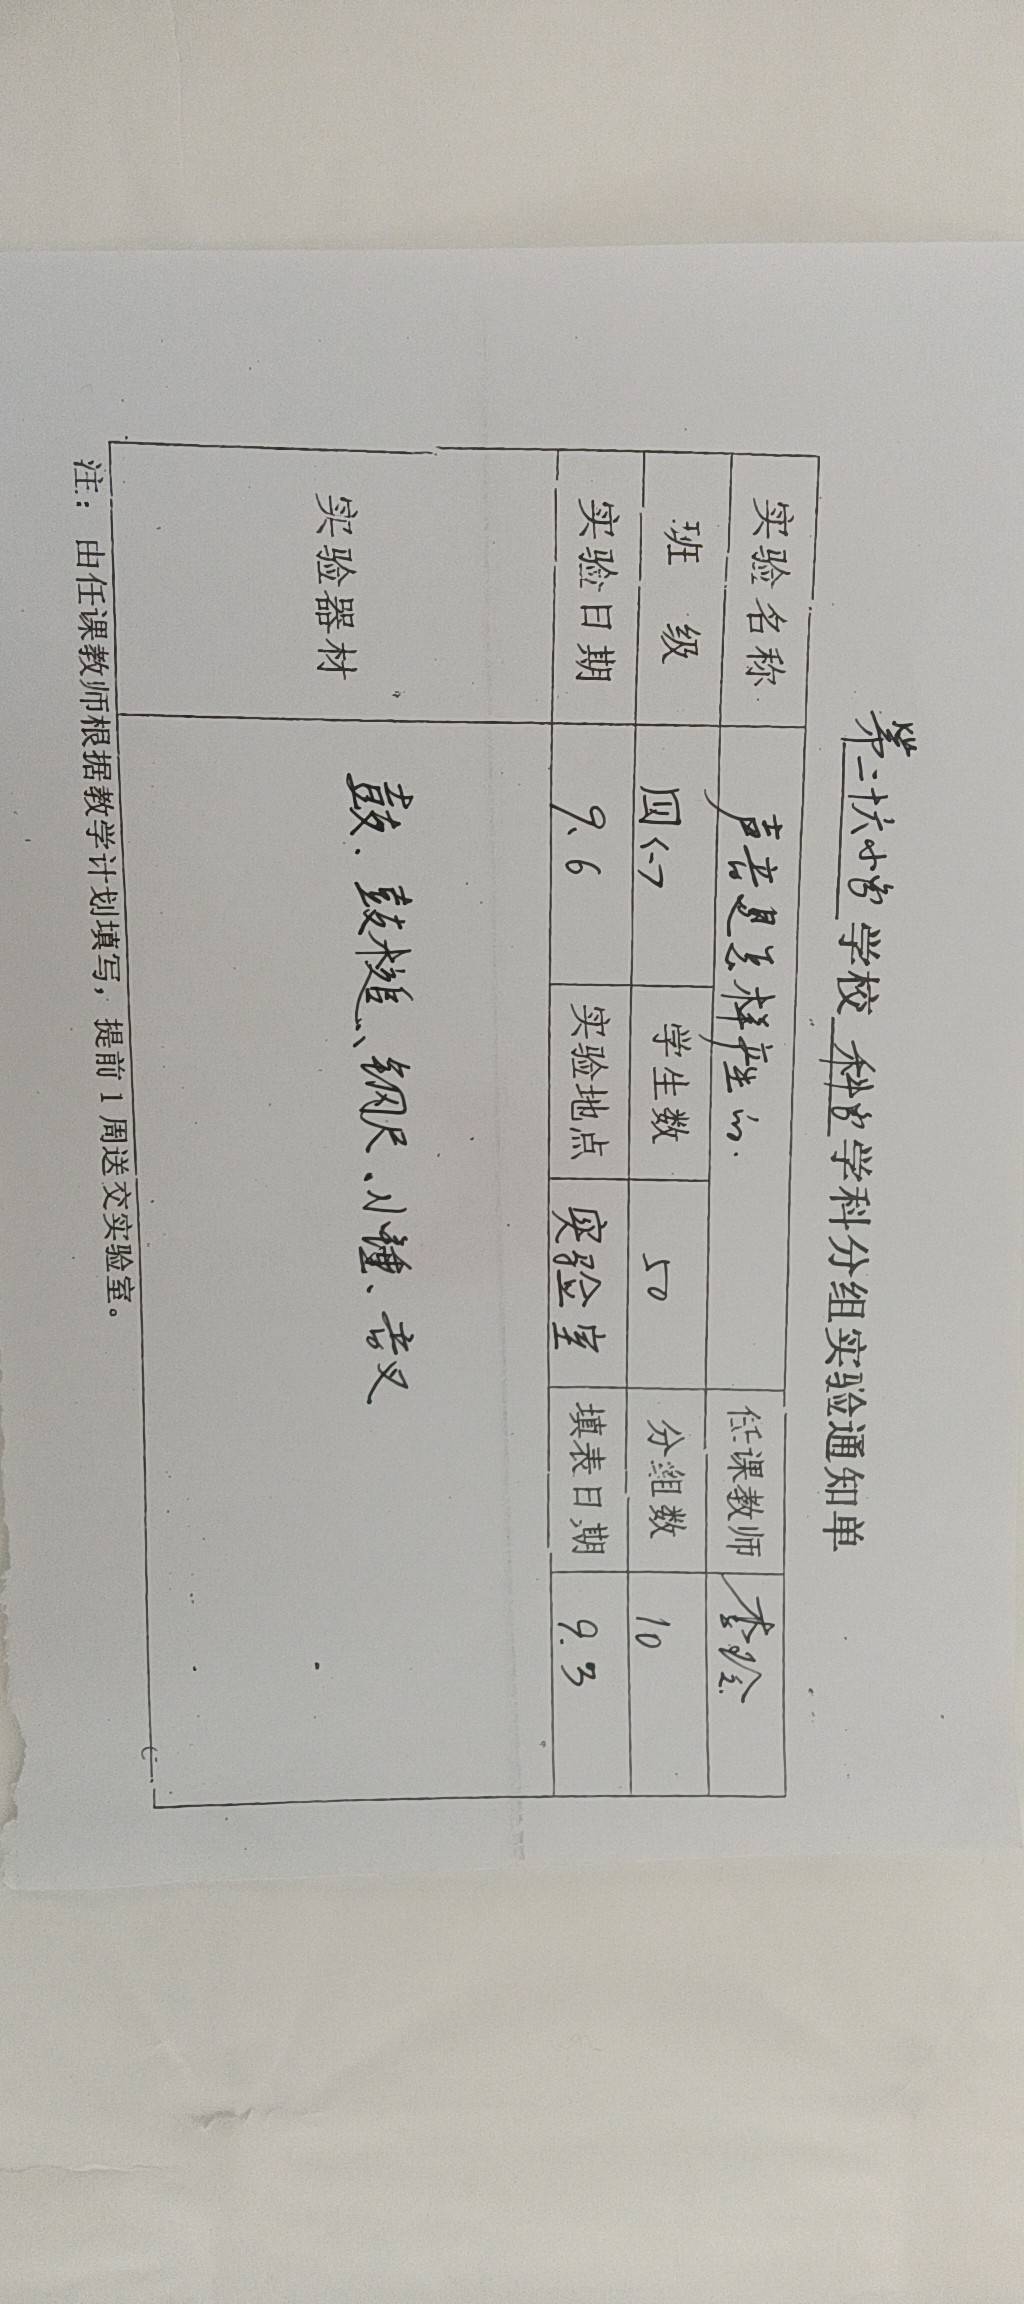 第二十六小学学校 科学学科分组实验通知单
实验名称 声音是怎样产生的. 任课教师
班 级 四(一) 学生数 50 分组数 10
实验日期 9.6 实验地点 实验室 填表日期 9.3
实验器材 鼓. 鼓槌、钢尺、小锤、音叉
注：由任课教师根据教学计划填写，提前1周送交实验室。